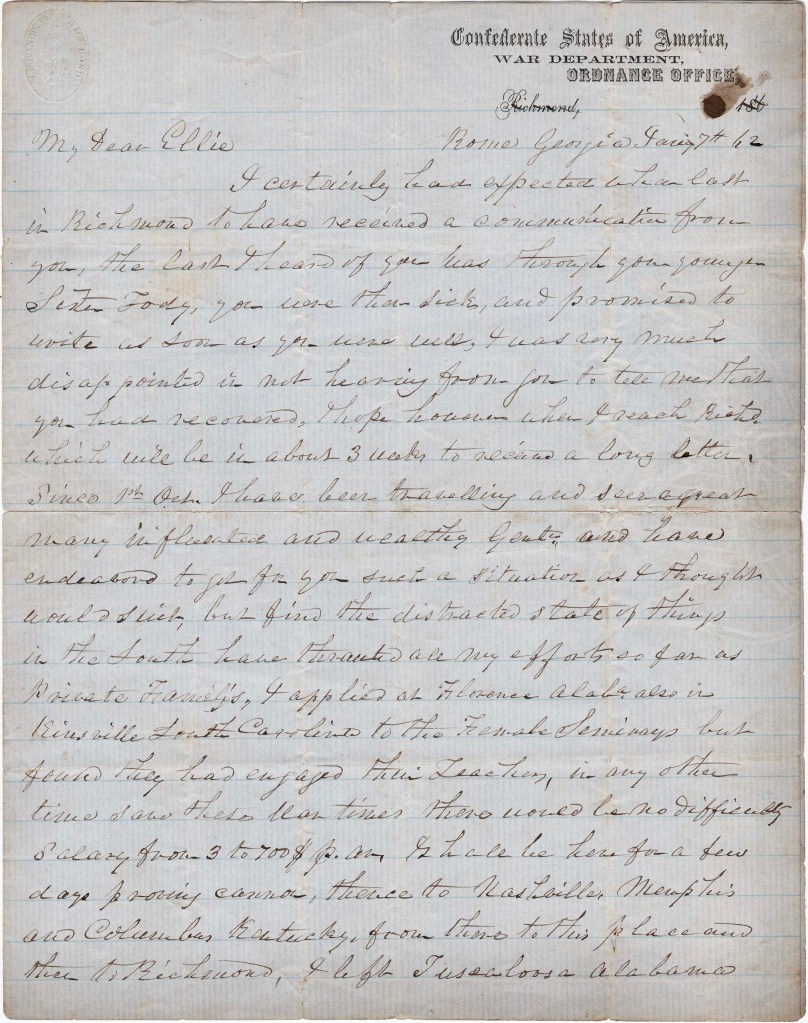 Confederate States of America,
WAR DEPARTMENT,
ORDNANCE OFFICE,
Richmond, 186
My Dear Ellie Rome Georgia Jany 7th 62
I certainly had expected when last
in Richmond to have received a communication from
you, the last I heard of you was through your younger
Sister Tody, you were then sick, and promised to
write as soon as you were well, I was very much
disappointed in not hearing from you to tell me that
you had recovered, I hope however when I reach Richd
which will be in about 3 weeks to receive a long letter.
Since 1st Oct. I have been travelling and seen a great
many influential and wealthy Gentn. and have
endeavord to get for you such a situation as I thought
would suit, but find the distracted state of things
in the South have thwarted all my efforts so far as
Private Family's, I applied at Florence Alaba also in
South Carolina to the Female Seminarys but
found they had engaged their Teachers, in any other
time save these War times there would be no difficulty
Salary from 3 to 700$ p. an, I shall be here for a few
days proving cannon, thence to Nashville, Memphis
and Columbus Kentucky, from there to this place and
then to Richmond, I left Tuscaloosa Alabama